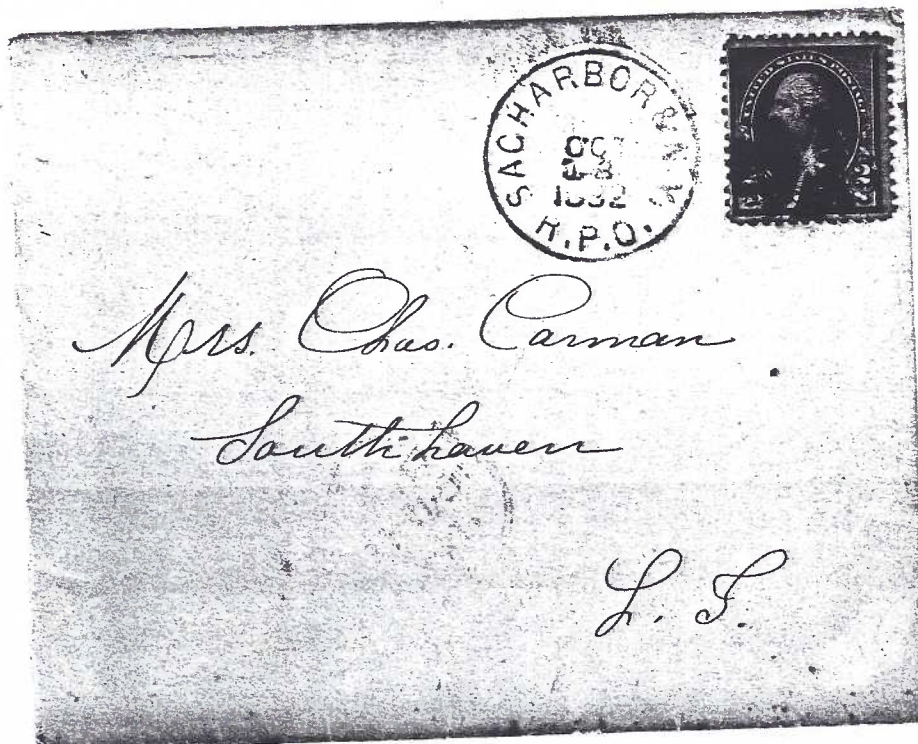 SAG HARBOR & N.Y.
OCT
1892
R.P.O.
UNITED STATES POSTAGE
Mrs. Chas. Carman
Southhaven
L. I.